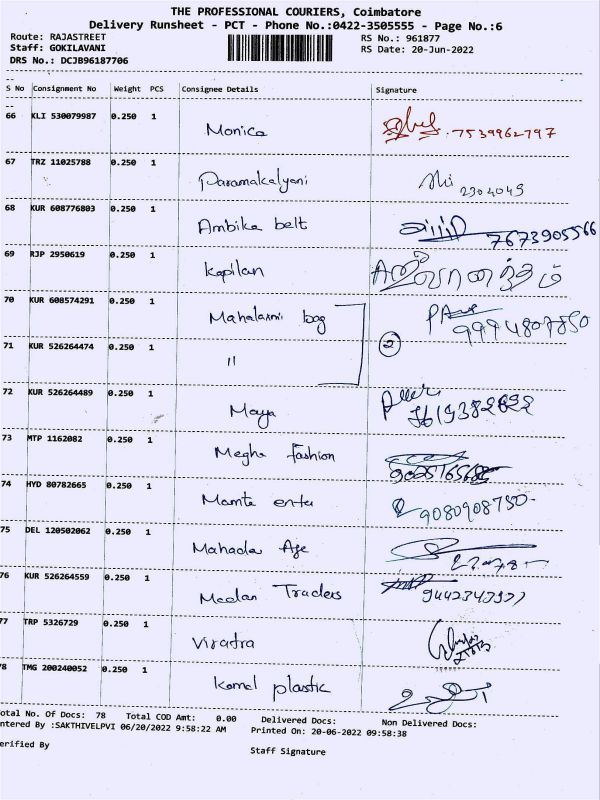 THE PROFESSIONAL COURIERS, Coimbatore
Delivery Runsheet - PCT - Phone No.:0422-3505555 - Page No.:6
Route: RAJASTREET RS No.: 961877
Staff: GOKILAVANI RS Date: 20-Jun-2022
DRS No.: DCJB96187706
S No Consignment No Weight PCS Consignee Details Signature
66 KLI 530079987 0.250 1 Monica 7539962797
67 TRZ 11025788 0.250 1 Paramakalyani 2304049
68 KUR 608776803 0.250 1 Ambika belt 7673905566
69 RJP 2950619 0.250 1 Kapilan
70 KUR 608574291 0.250 1 Mahalaxmi bag 9994807850
71 KUR 526264474 0.250 1 " 2
72 KUR 526264489 0.250 1 Maya
73 MTP 1162082 0.250 1 Megha fashion
74 HYD 80782665 0.250 1 Mamta enter 9080908750-
75 DEL 120502062 0.250 1 Mahada Age
76 KUR 526264559 0.250 1 Meelan Traders
77 TRP 5326729 0.250 1 Viratra
78 TMG 200240052 0.250 1 Komal plastic
Total No. Of Docs: 78 Total COD Amt: 0.00 Delivered Docs: Non Delivered Docs:
ntered By :SAKTHIVELPVI 06/20/2022 9:58:22 AM Printed On: 20-06-2022 09:58:38
erified By Staff Signature